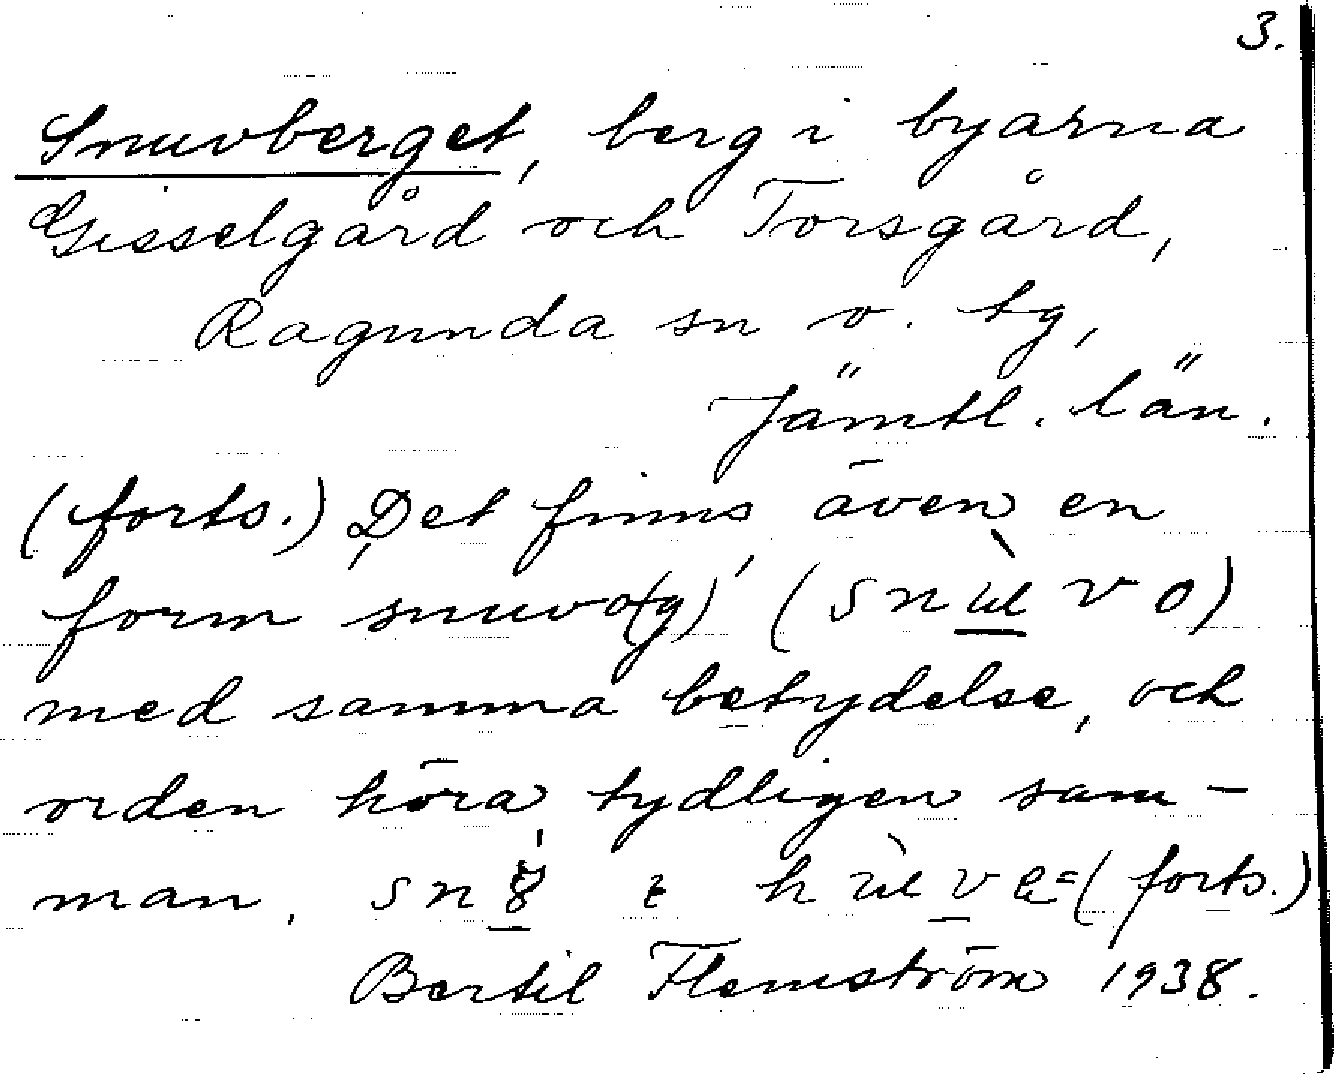 3.
Snuvberget, berg i byarna
Gisselgård och Torsgård,
Ragunda sn o. tg,
Jämtl. län.
(forts.) Det finns även en
form snuvo(g) (
med samma betydelse, och
orden höra tydligen sam-
man. (forts.)
Bertil Flemström 1938.